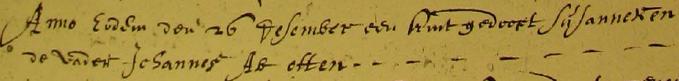 Anno Eodem den 26 Desember een kint gedooft Susanneken
de vader Johannes Ab etten - - - - - - - - -